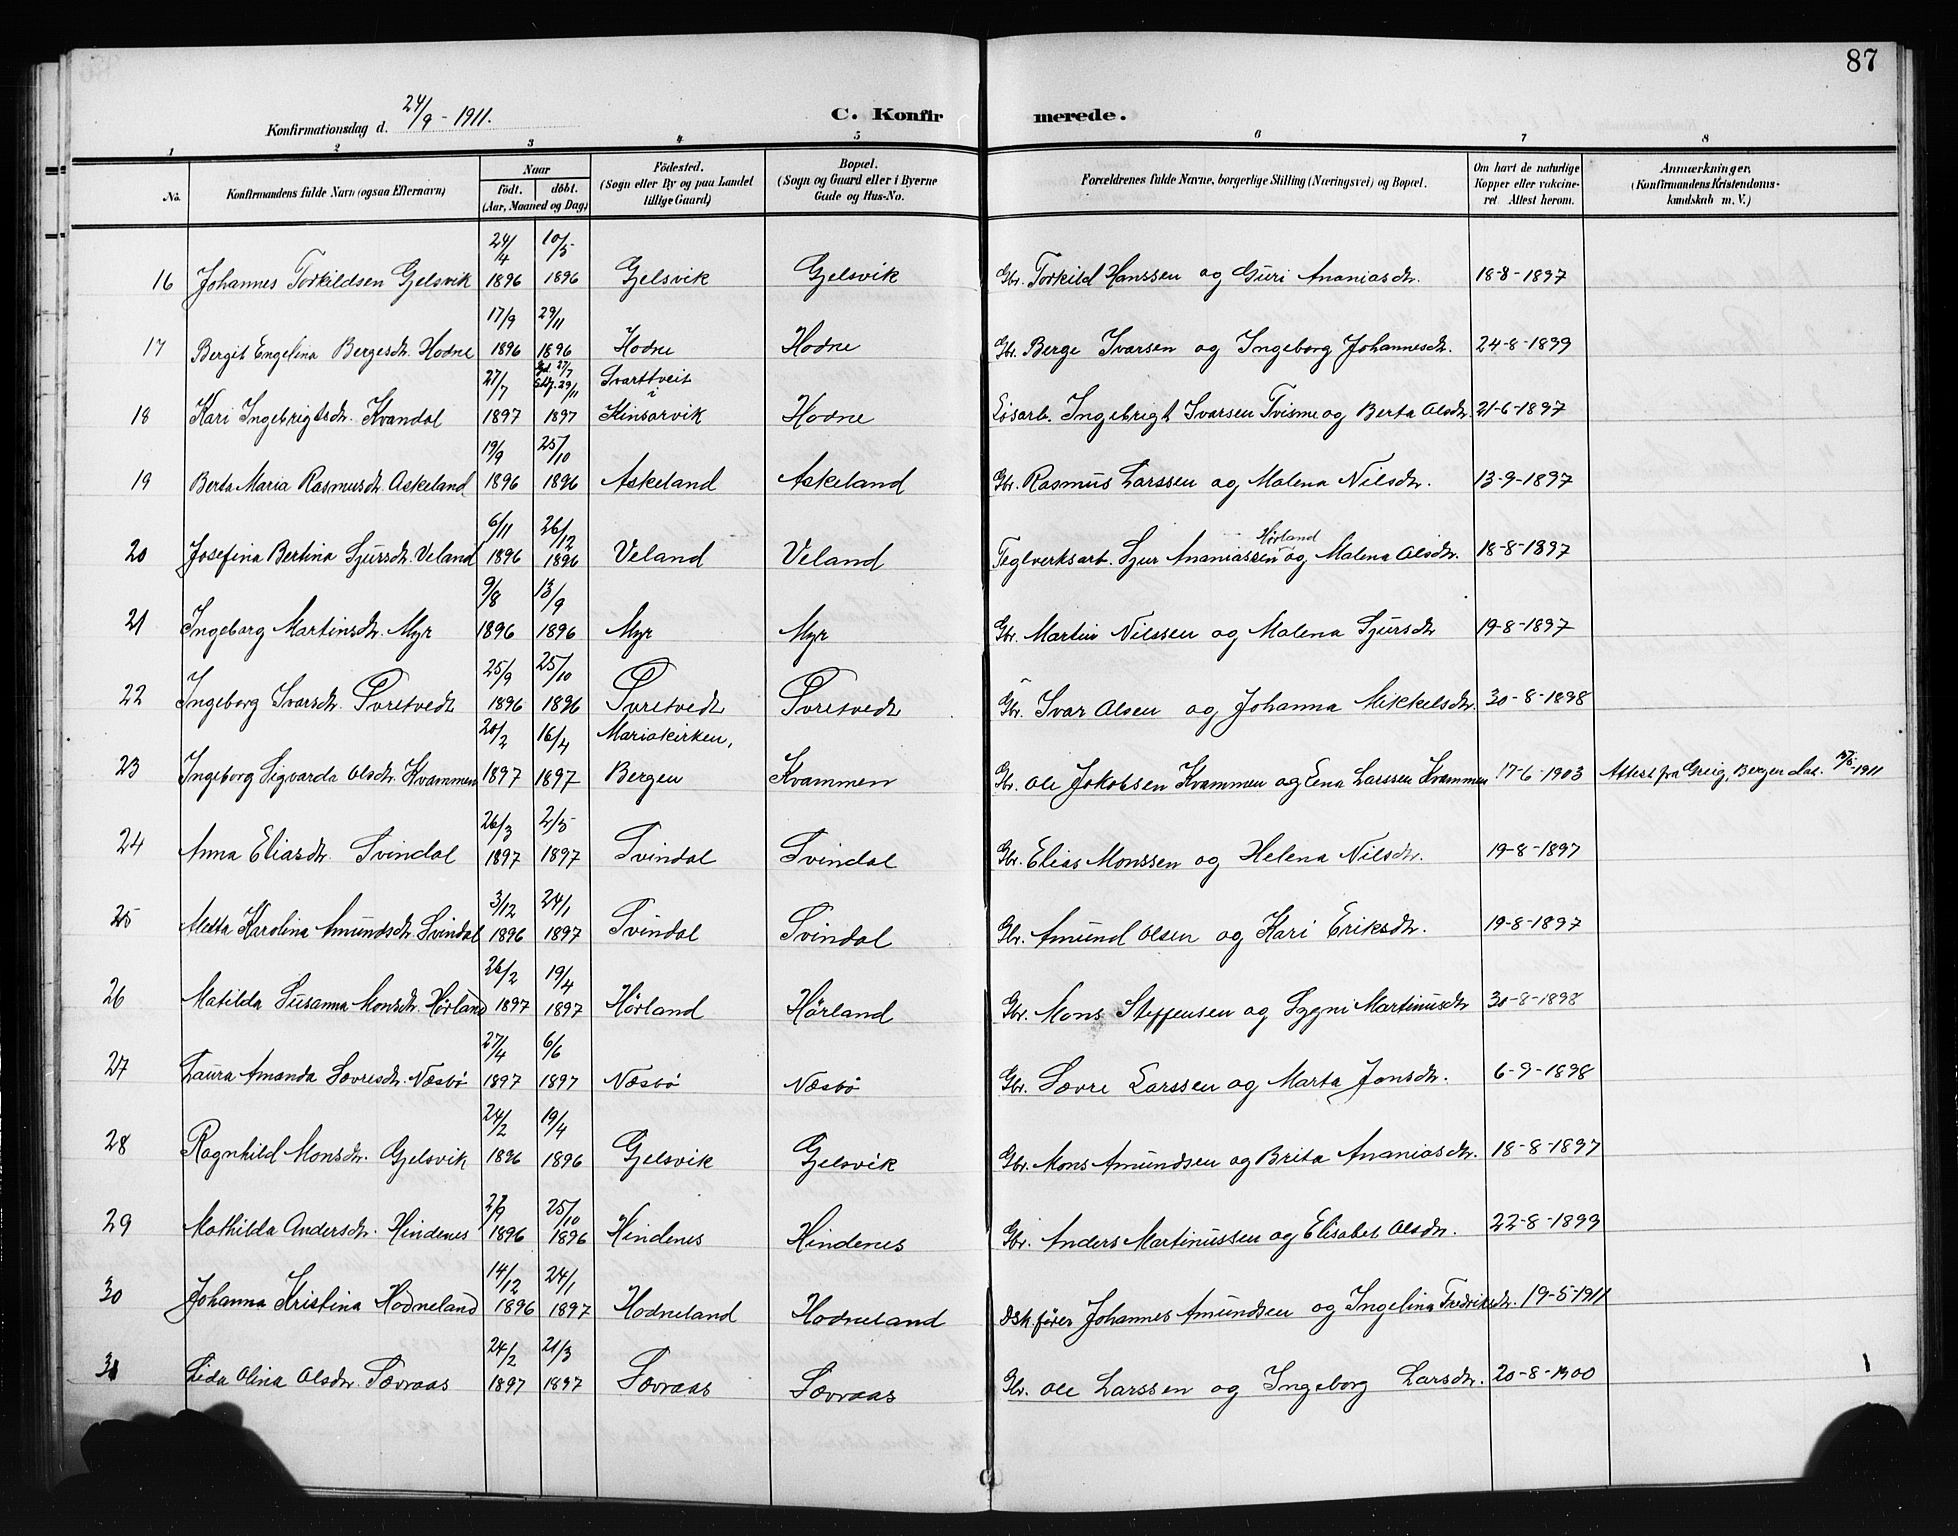 87
Konfirmationsdag d. 24/9 - 1911.
C. Konfirmerede.
1 2 3 4 5 6 7 8
No. Konfirmandens fulde Navn (ogsaa Efternavn) Naar födt. döbt. (Aar, Maaned og Dag) Födested. (Sogn eller By og paa Landet tillige Gaard) Bopæl. (Sogn og Gaard eller i Byerne Gade og Hus-No. Forældrenes fulde Navne, borgerlige Stilling (Næringsvei) og Bopæl. Om havt de naturlige Kopper eller vakcineret. Attest herom. Anmærkninger. (Konfirmandens Kristendomskundskab m. V.)
16 Johannes Torkildsen Gjelsvik 24/4 1896 10/5 1896 Gjelsvik Gjelsvik Gbr. Torkild Hanssen og Guri Ananiasdtr. 18-8-1897
17 Bergit Engelina Bergesdtr. Hodne 17/9 1896 29/11 1896 Hodne Hodne Gbr. Berge Ivarsen og Ingeborg Johannesdtr. 24-8-1899
18 Kari Ingebrigtsdtr. Kvandal 27/7 1897 27/7 29/11 1897 Svarttveit i Kinsarvik Hodne Løsarb. Ingebrigt Ivarsen Tvisme og Berta Olsdtr. 21-6-1897
19 Berta Maria Rasmusdtr. Askeland 19/9 1896 25/10 1896 Askeland Askeland Gbr. Rasmus Larssen og Malena Nilsdtr. 13-9-1897
20 Josefina Bertina Sjursdtr. Veland 6/11 1896 26/12 1896 Veland Veland Teglverksarb. Sjur Ananiassen Hørland og Malena Olsdtr. 18-8-1897
21 Ingeborg Martinsdtr. Myr 9/8 1896 13/9 1896 Myr Myr Gbr. Martin Nilssen og Malena Sjursdtr 19-8-1897
22 Ingeborg Ivarsdtr. Soretvedt 25/9 1896 25/10 1896 Soretvedt Soretvedt Gbr. Ivar Olsen og Johanna Mikkelsdtr. 30-8-1898
23 Ingeborg Sigvarda Olsdtr. Kvammen 20/2 1897 16/4 1897 Mariakirken, Bergen Kvammen Gbr. Ole Jakobsen Kvammen og Lena Larssen Kvammen 17-6-1903 Attest fra Greig, Bergen dat. 1911
24 Anna Eliasdtr. Svindal 26/3 1897 2/5 1897 Svindal Svindal Gbr. Elias Monssen og Helena Nilsdtr. 19-8-1897
25 Metta Karolina Amundsdtr. Svindal 3/12 1896 24/1 1897 Svindal Svindal Gbr. Amund Olsen og Kari Eriksdtr. 19-8-1897
26 Matilda Susanna Monsdtr. Hørland 26/2 1897 19/4 1897 Hørland Hørland Gbr. Mons Steffensen og Sygni Martinusdtr 30-8-1898
27 Laura Amanda Sævresdtr. Næsbø 27/4 1897 6/6 1897 Næsbø Næsbø Gbr. Sævre Larssen og Marta Jonsdtr. 6-9-1898
28 Ragnhild Monsdtr. Gjelsvik 24/2 1896 19/4 1896 Gjelsvik Gjelsvik Gbr. Mons Amundsen og Brita Ananiasdtr. 18-8-1897
29 Mathilda Andersdtr. Hindenes 1896 25/10 1896 Hindenes Hindenes Gbr. Anders Martinussen og Elisabet Olsdtr. 22-8-1899
30 Johanna Kristina Hodneland 14/12 1896 24/1 1897 Hodneland Hodneland Dsk.fører Johannes Amundsen og Ingelina Fredriksdtr. 19-5-1911
31 Lida Olina Olsdtr. Sævraas 24/2 1897 21/3 1897 Sævraas Sævraas Gbr. Ole Larssen og Ingeborg Larsdtr. 20-8-1900